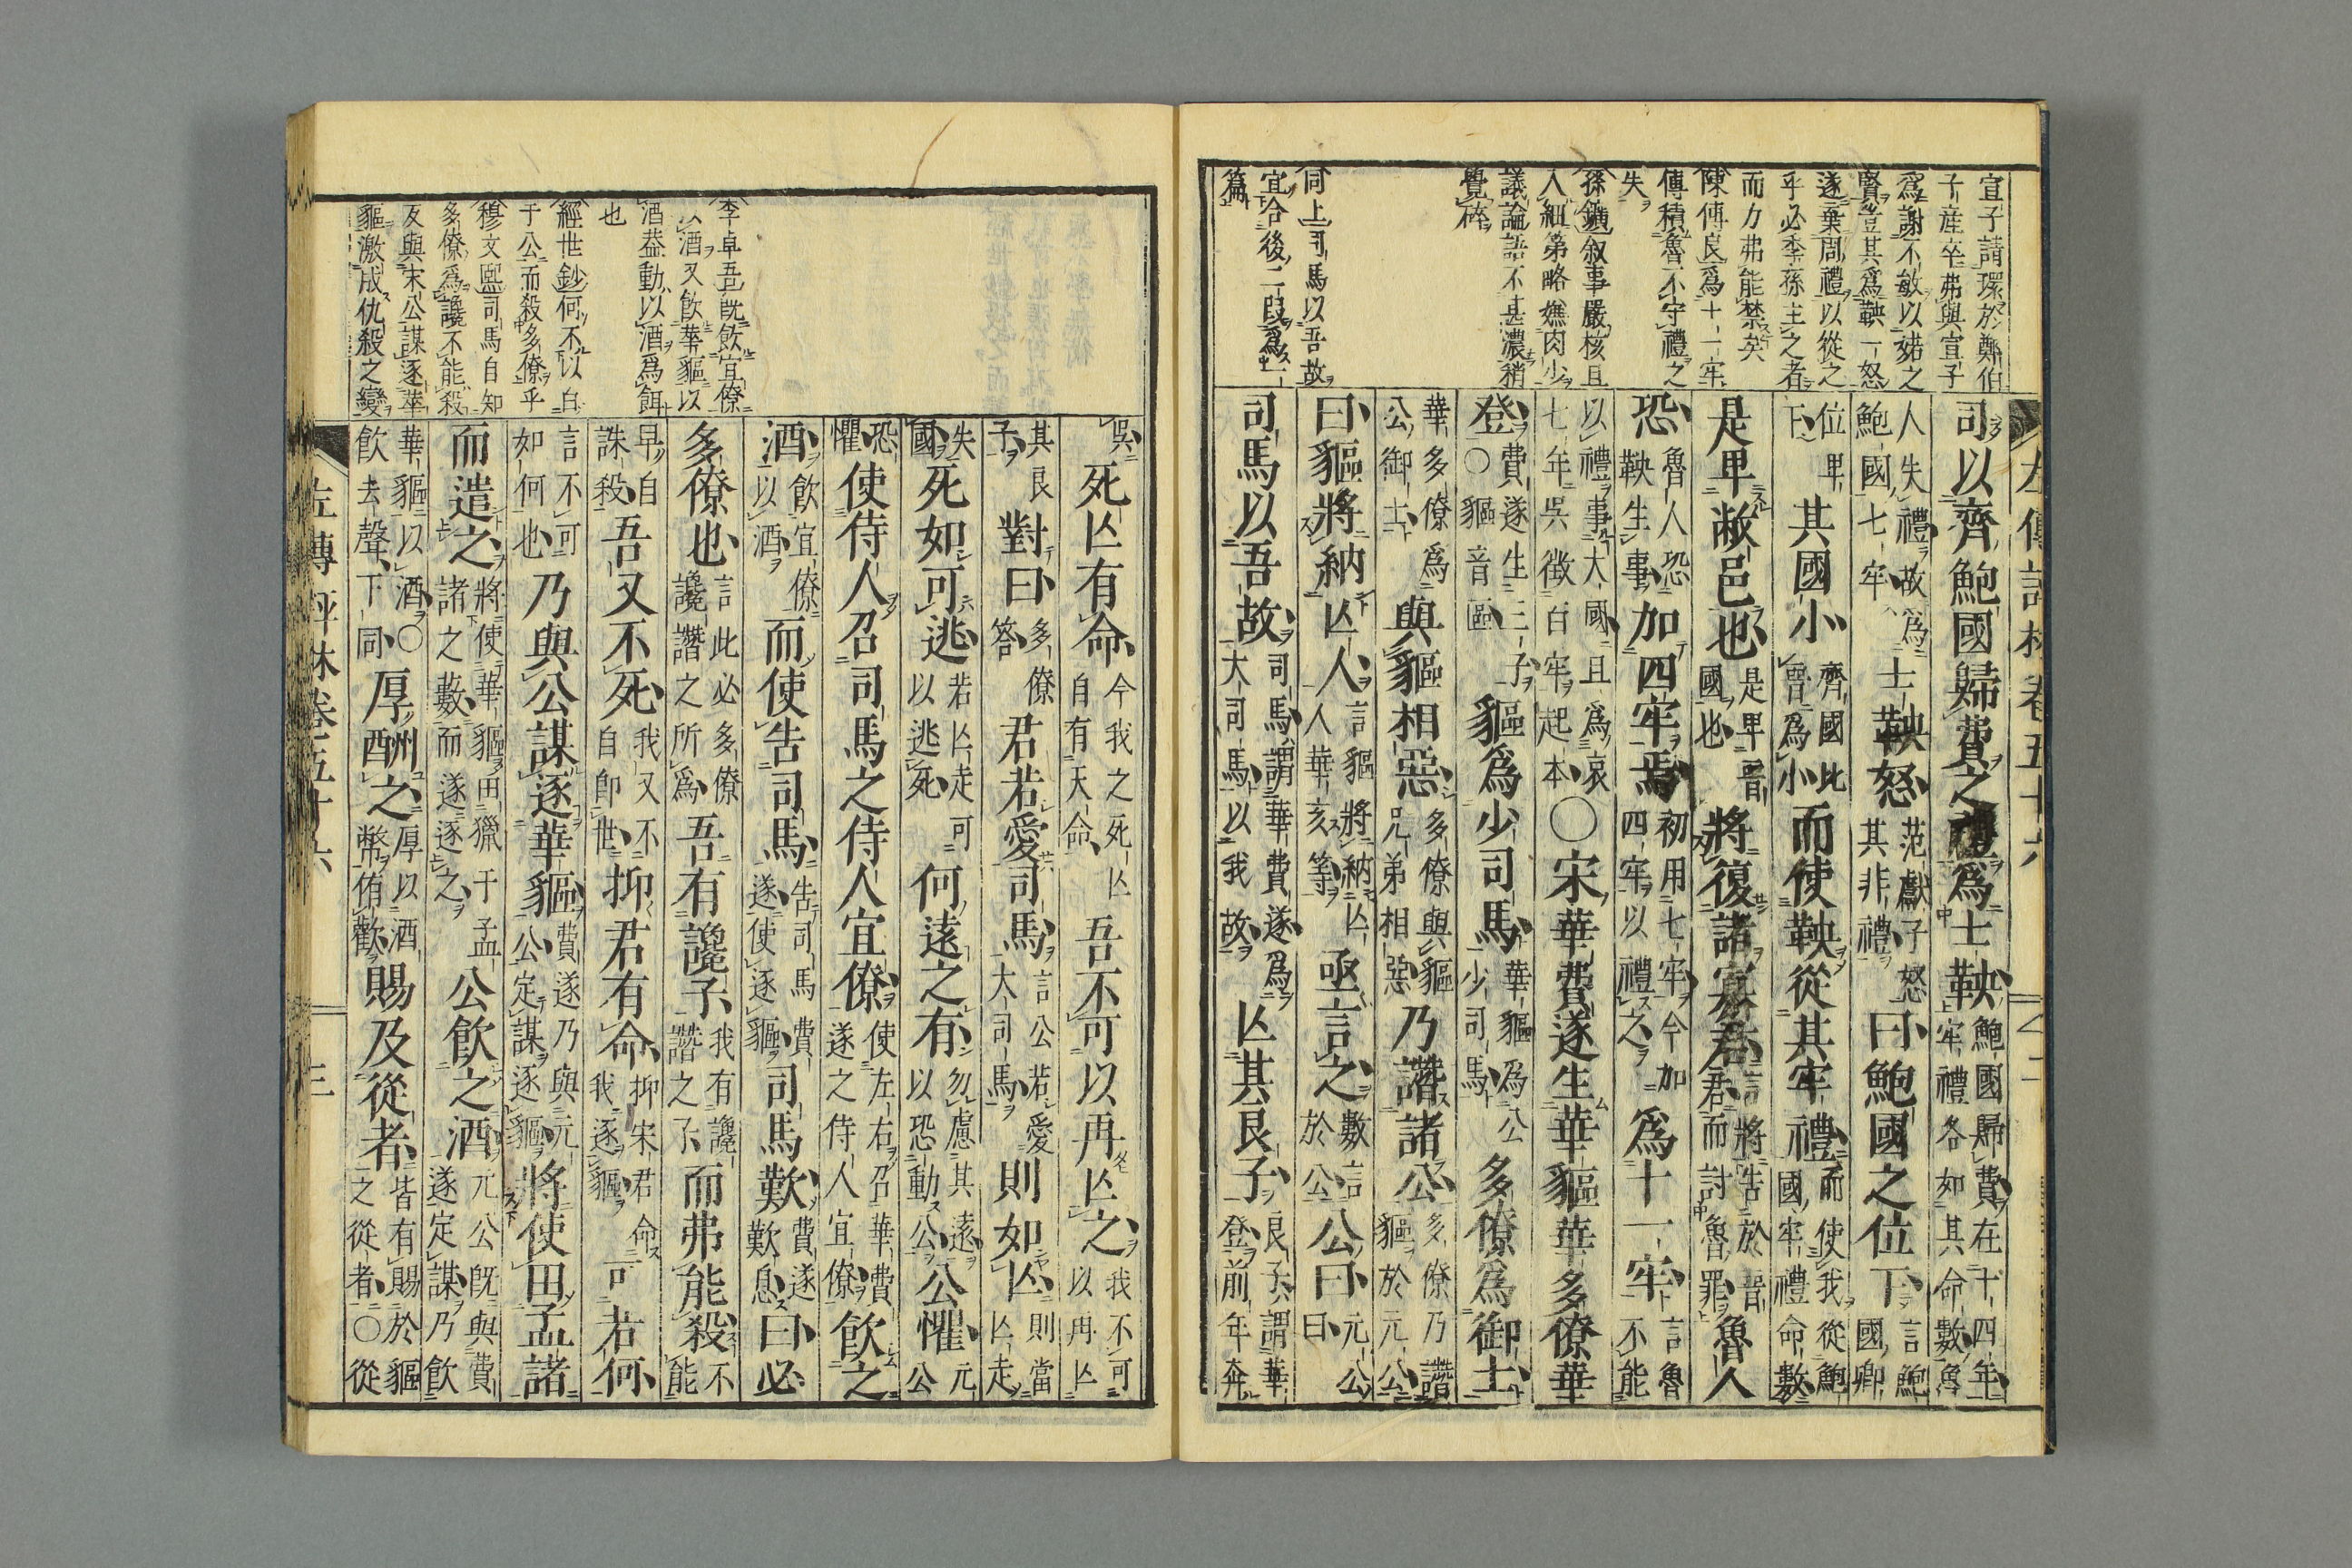 宣子請環於鄭伯
子産卒弗與宣子
爲謝不敏以婼之
賢豈其爲鞅一怒
遂棄周禮以從之
乎必季孫主之者
而力弗能禁矣
陳傅良爲十一牢
傳積魯不守禮之
失
孫鑛叙事嚴核且
入細第略嫵肉少
議論語不甚濃稍
覺碎
同上司馬以吾故
宜合後二段爲一
篇
司以齊鮑國歸費之禮爲士鞅鮑國歸費在十四年牢禮各如其命數魯
人失禮故爲鮑國七牢士鞅怒范獻子怒其非禮曰鮑國之位下言鮑國卿
位卑下其國小齊國比晉爲小而使鞅從其牢禮而使我從鮑國牢禮命數
是卑敝邑也是卑晉國也將復諸寡君言將告於晉君而討魯罪魯人
恐魯人恐鞅生事加四牢焉初用七牢今加四牢以禮之爲十一牢言魯不能
以禮事大國且爲哀七年呉徴百牢起本〇宋華費遂生華貙華多僚華
登費遂生三子〇貙音區貙爲少司馬華貙爲公少司馬多僚爲御士
華多僚爲公御士與貙相惡多僚與貙兄弟相惡乃譖諸公多僚乃譖貙於元公
曰貙將納亾人言貙將納亾人華亥等亟言之數言於公公曰元公曰
司馬以吾故司馬謂華費遂爲大司馬以我故亾其良子良子謂華登前年奔
李卓吾旣飲宜僚
以酒又飲華貙以
酒葢動以酒爲餌
也
經世鈔何不以白
于公而殺多僚乎
穆文熙司馬自知
多僚爲讒不能殺
反與宋公謀逐華
貙激成仇殺之變
呉死亾有命今我之死亾自有天命吾不可以再亾之我不可以再亾
其良子對曰多僚答君若愛司馬言公若愛大司馬則如亾則當亾走
失國死如可逃若亾走可以逃死何遠之有勿慮其遠以恐動公公懼元公
恐懼使侍人召司馬之侍人宜僚使左右召華費遂之侍人宜僚飲之
酒飲宜僚以酒而使告司馬告司馬費遂使逐貙司馬歎費遂歎息曰必
多僚也言此必多僚讒譖之所爲吾有讒子我有讒譖之子而弗能殺不能
早自誅殺吾又不死我又不自卽世抑君有命抑宋君命我逐貙可若何
言不可如何也乃與公謀逐華貙費遂乃與元公定謀逐貙將使田孟諸
而遣之將使華貙田獵于孟諸之藪而遂逐之公飲之酒元公旣與費遂定謀乃飲
華貙以酒〇飲去聲下同厚酬之厚以酒幣侑歡賜及從者皆有賜於貙之從者〇從
左傳評林卷五十六 三